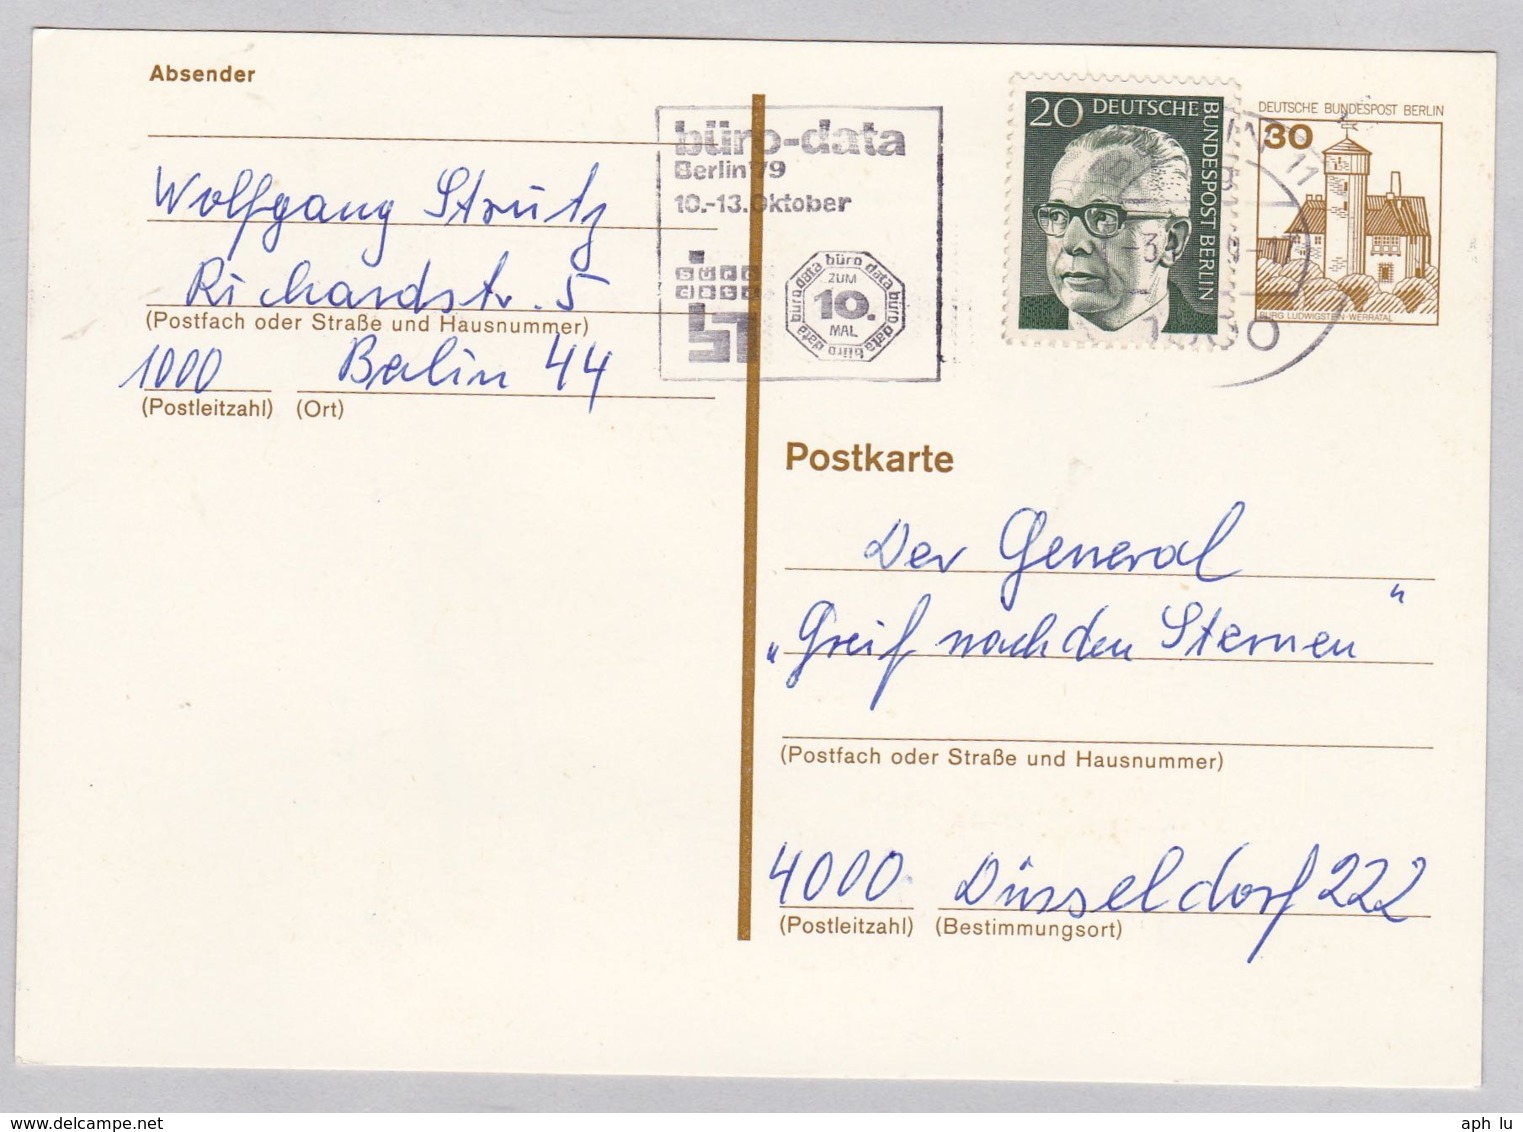 Absender
Wolfgang Strutz
Richardstr. 5
(Postfach oder Straße und Hausnummer)
1000 Berlin 44
(Postleitzahl) (Ort)
büro-data
Berlin '79
10.-13. Oktober
büro data büro data büro data büro data
ZUM
10.
MAL
20 DEUTSCHE BUNDESPOST BERLIN
DEUTSCHE BUNDESPOST BERLIN
30
BURG LUDWIGSTEIN·WERRATAL
BERLIN 11
1000
Postkarte
Der General
„Greif nach den Sternen"
(Postfach oder Straße und Hausnummer)
4000 Düsseldorf 222
(Postleitzahl) (Bestimmungsort)
www.delcampe.net
aph_lu